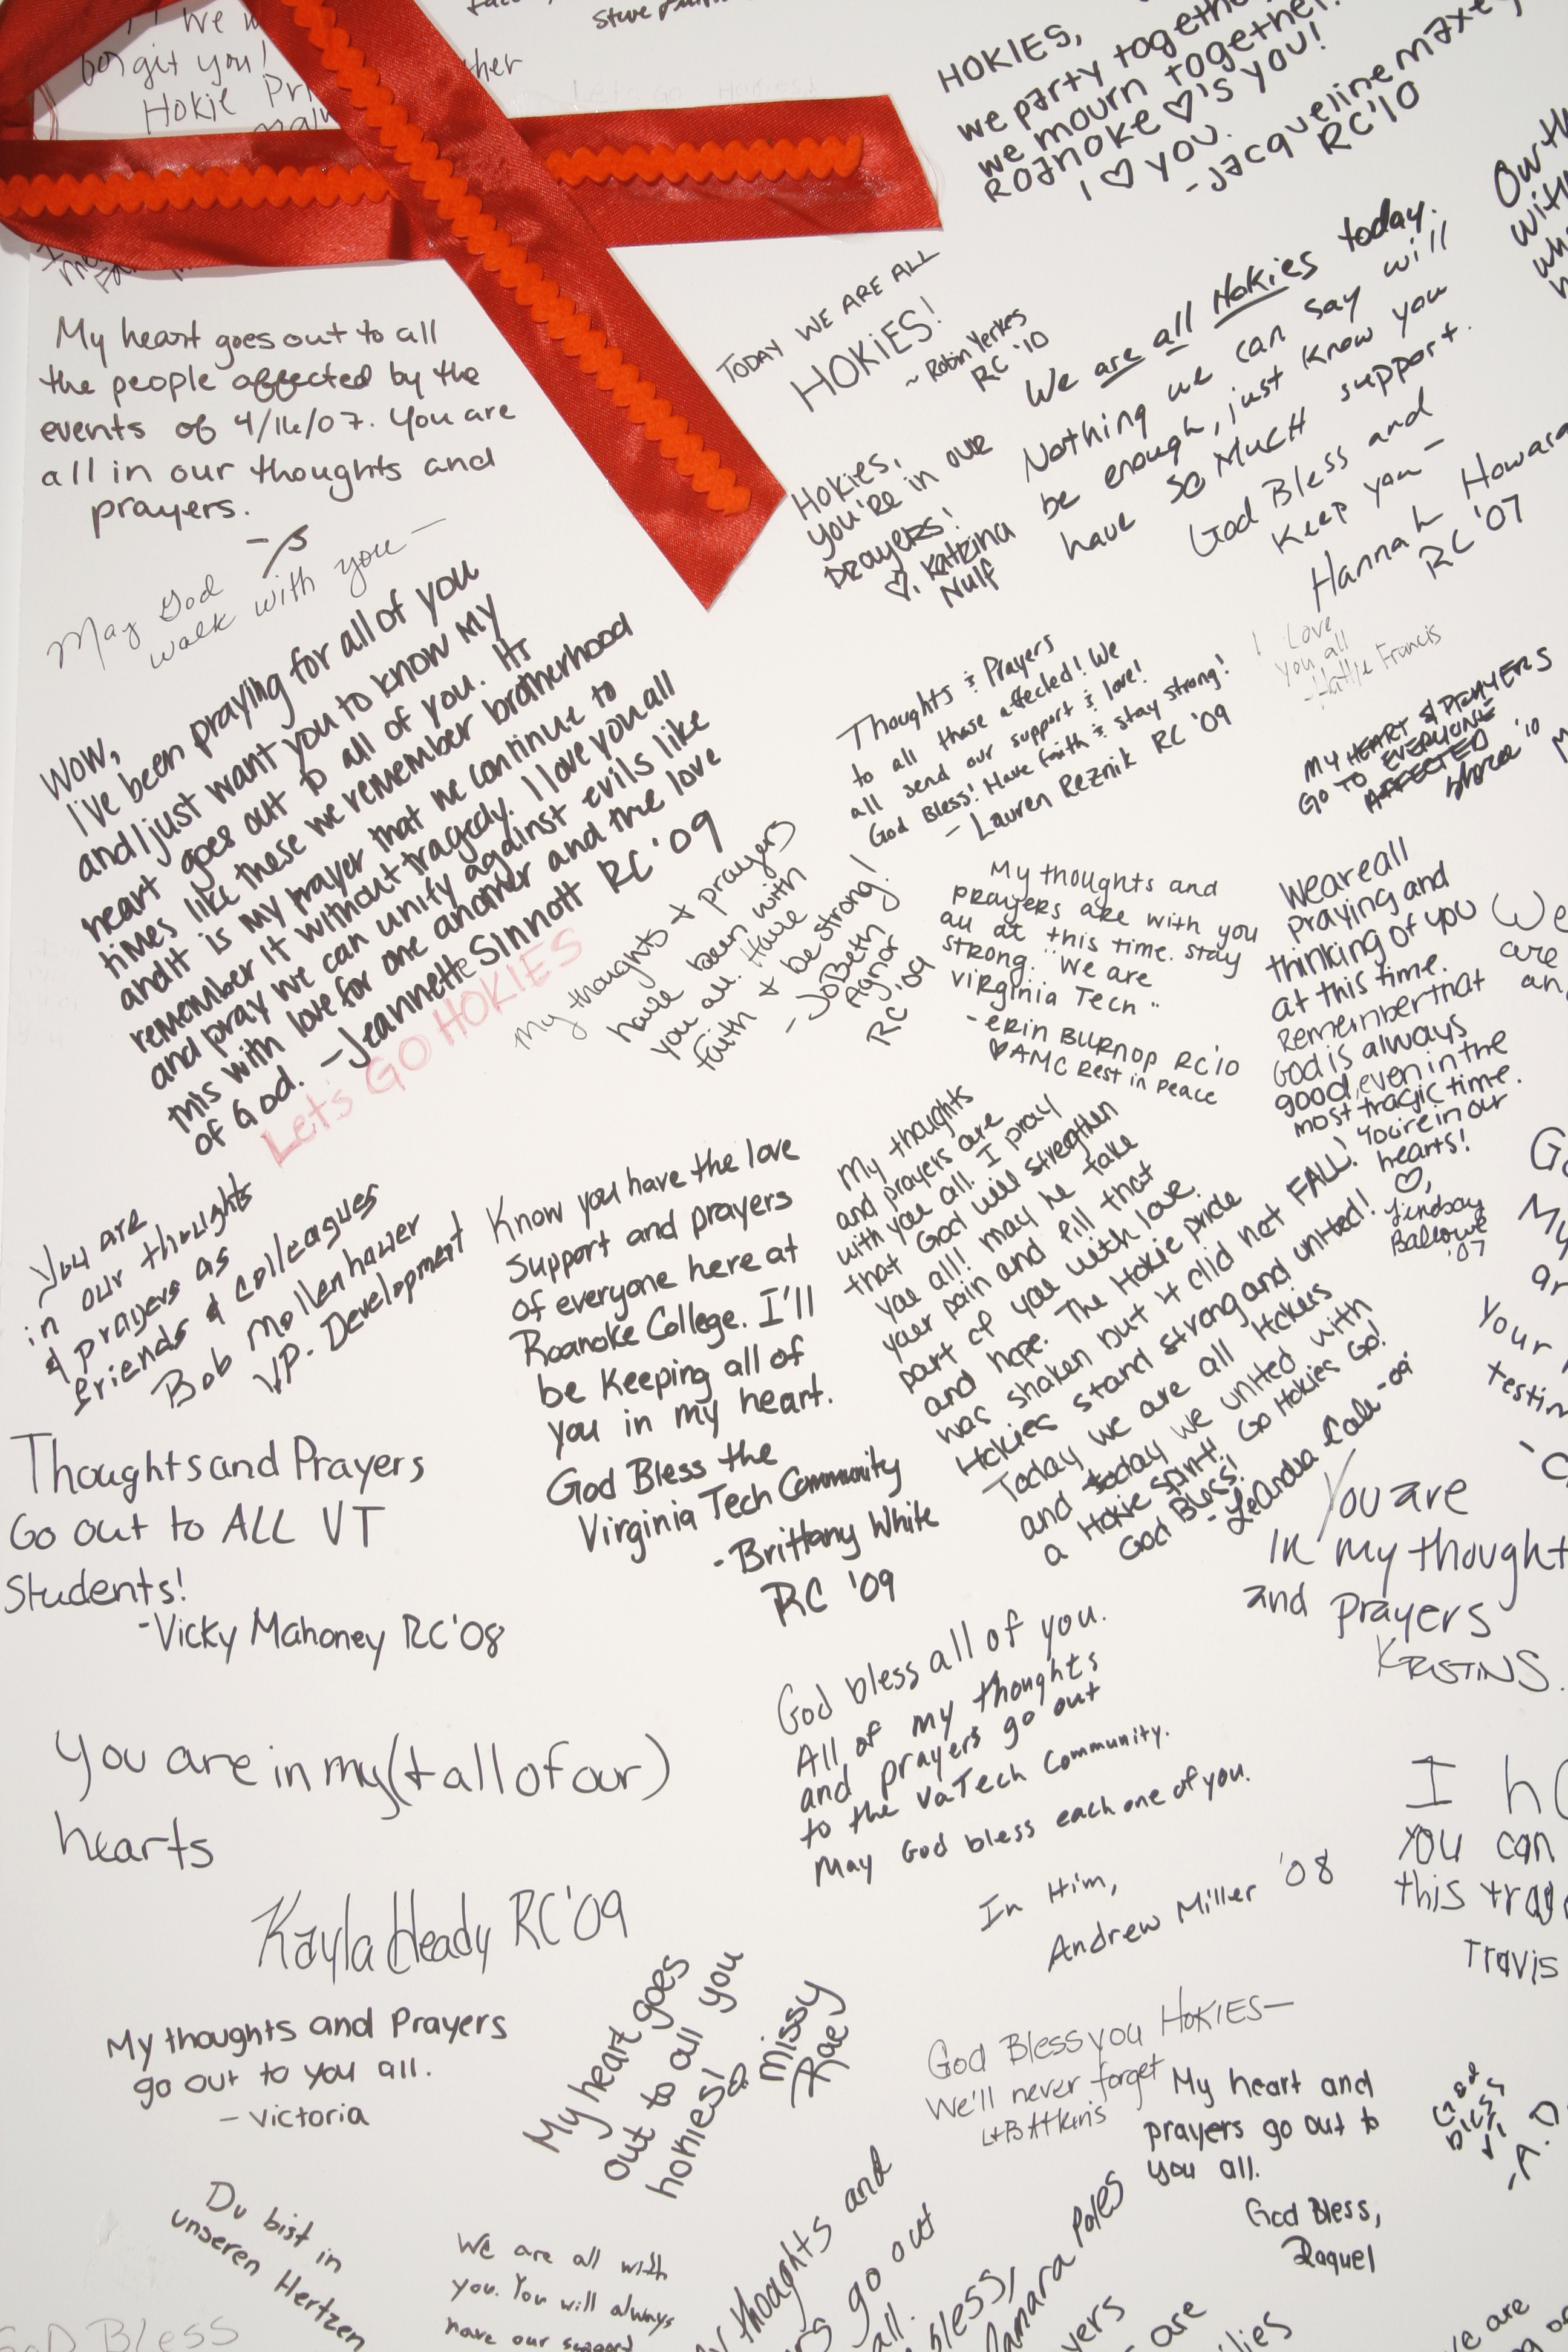 We
forgit you!
Hokie
HOKIES,
we party together
we mourn together
ROANOKE ♡'s you!
I ♡ you.
-Jacqueline Maxey
RC'10
TODAY WE ARE ALL
HOKiES!
~ Robin Yerkes
RC '10
We are all Hokies today.
Nothing we can say will
be enough, just know you
have SO MUCH support.
God Bless and
Keep you -
Hannah Howard
RC '07
My heart goes out to all
the people affected by the
events of 4/16/07. You are
all in our thoughts and
prayers.
May God
walk with you -
Hokies,
you're in our
prayers!
♡, Katrina
Nulf
Wow,
I've been praying for all of you
and I just want you to know my
heart goes out to all of you. It's
times like these we remember brotherhood
and it is my prayer that we continue to
remember it without tragedy. I love you all
and pray we can unify against evils like
this with love for one another and the love
of God. -Jeannette Sinnott RC '09
Let's GO HOKIES
Thoughts & Prayers
to all those affected! We
all send our support & love!
God Bless! Have faith & stay strong!
- Lauren Reznik RC '09
I Love
you all
Francis
MY HEART & PRAYERS
GO TO EVERYONE
AFFECTED
'10
My thoughts + prayers
have been with
you all. Have
faith + be strong!
- JoBeth
Agnor
RC '09
My thoughts and
prayers are with you
all at this time. Stay
strong. "We are
Virginia Tech"
- Erin Burnop RC'10
♡AMC Rest in peace
We are all
praying and
thinking of you
at this time.
Remember that
God is always
good, even in the
most tragic time.
You're in our
hearts!
♡,
Lindsay
Ballowe
'07
You are
in our thoughts
& prayers as
friends & colleagues
Bob Mollenhauer
VP. Development
Know you have the love
support and prayers
of everyone here at
Roanoke College. I'll
be Keeping all of
you in my heart.
God Bless the
Virginia Tech Community
-Brittany White
RC '09
My thoughts
and prayers are
with you all. I pray
that God will stregthen
you all! may he take
your pain and fill that
part of you with love
and hope. The Hokie pride
was shaken but it did not FALL!
Hokies stand strong and united!
Today we are all Hokies
and today we united with
a Hokie Spirit! Go Hokies Go!
God Bless!
- LeAndra Cale -09
Thoughts and Prayers
Go out to ALL VT
Students!
-Vicky Mahoney RC'08
You are
in my thought
and prayers
KRISTIN S.
God bless all of you.
All of my thoughts
and prayers go out
to the VaTech Community.
May God bless each one of you.
In Him,
Andrew Miller '08
You are in my (+ all of our)
hearts
Kayla Heady RC'09
I
you can
this
Travis
My thoughts and Prayers
go out to you all.
- Victoria
My heart goes
out to all you
hokies!
♡ Missy
Rae
God Bless you HOKIES-
We'll never forget
My heart and
prayers go out to
you all.
God Bless,
Raquel
God
Bless
VT
-A.D.
Du bist in
unseren Hertzen
We are all with
you. You will always
have our support
thoughts and
go out
all.
bless,
Tamara Poles
GOD BLESS